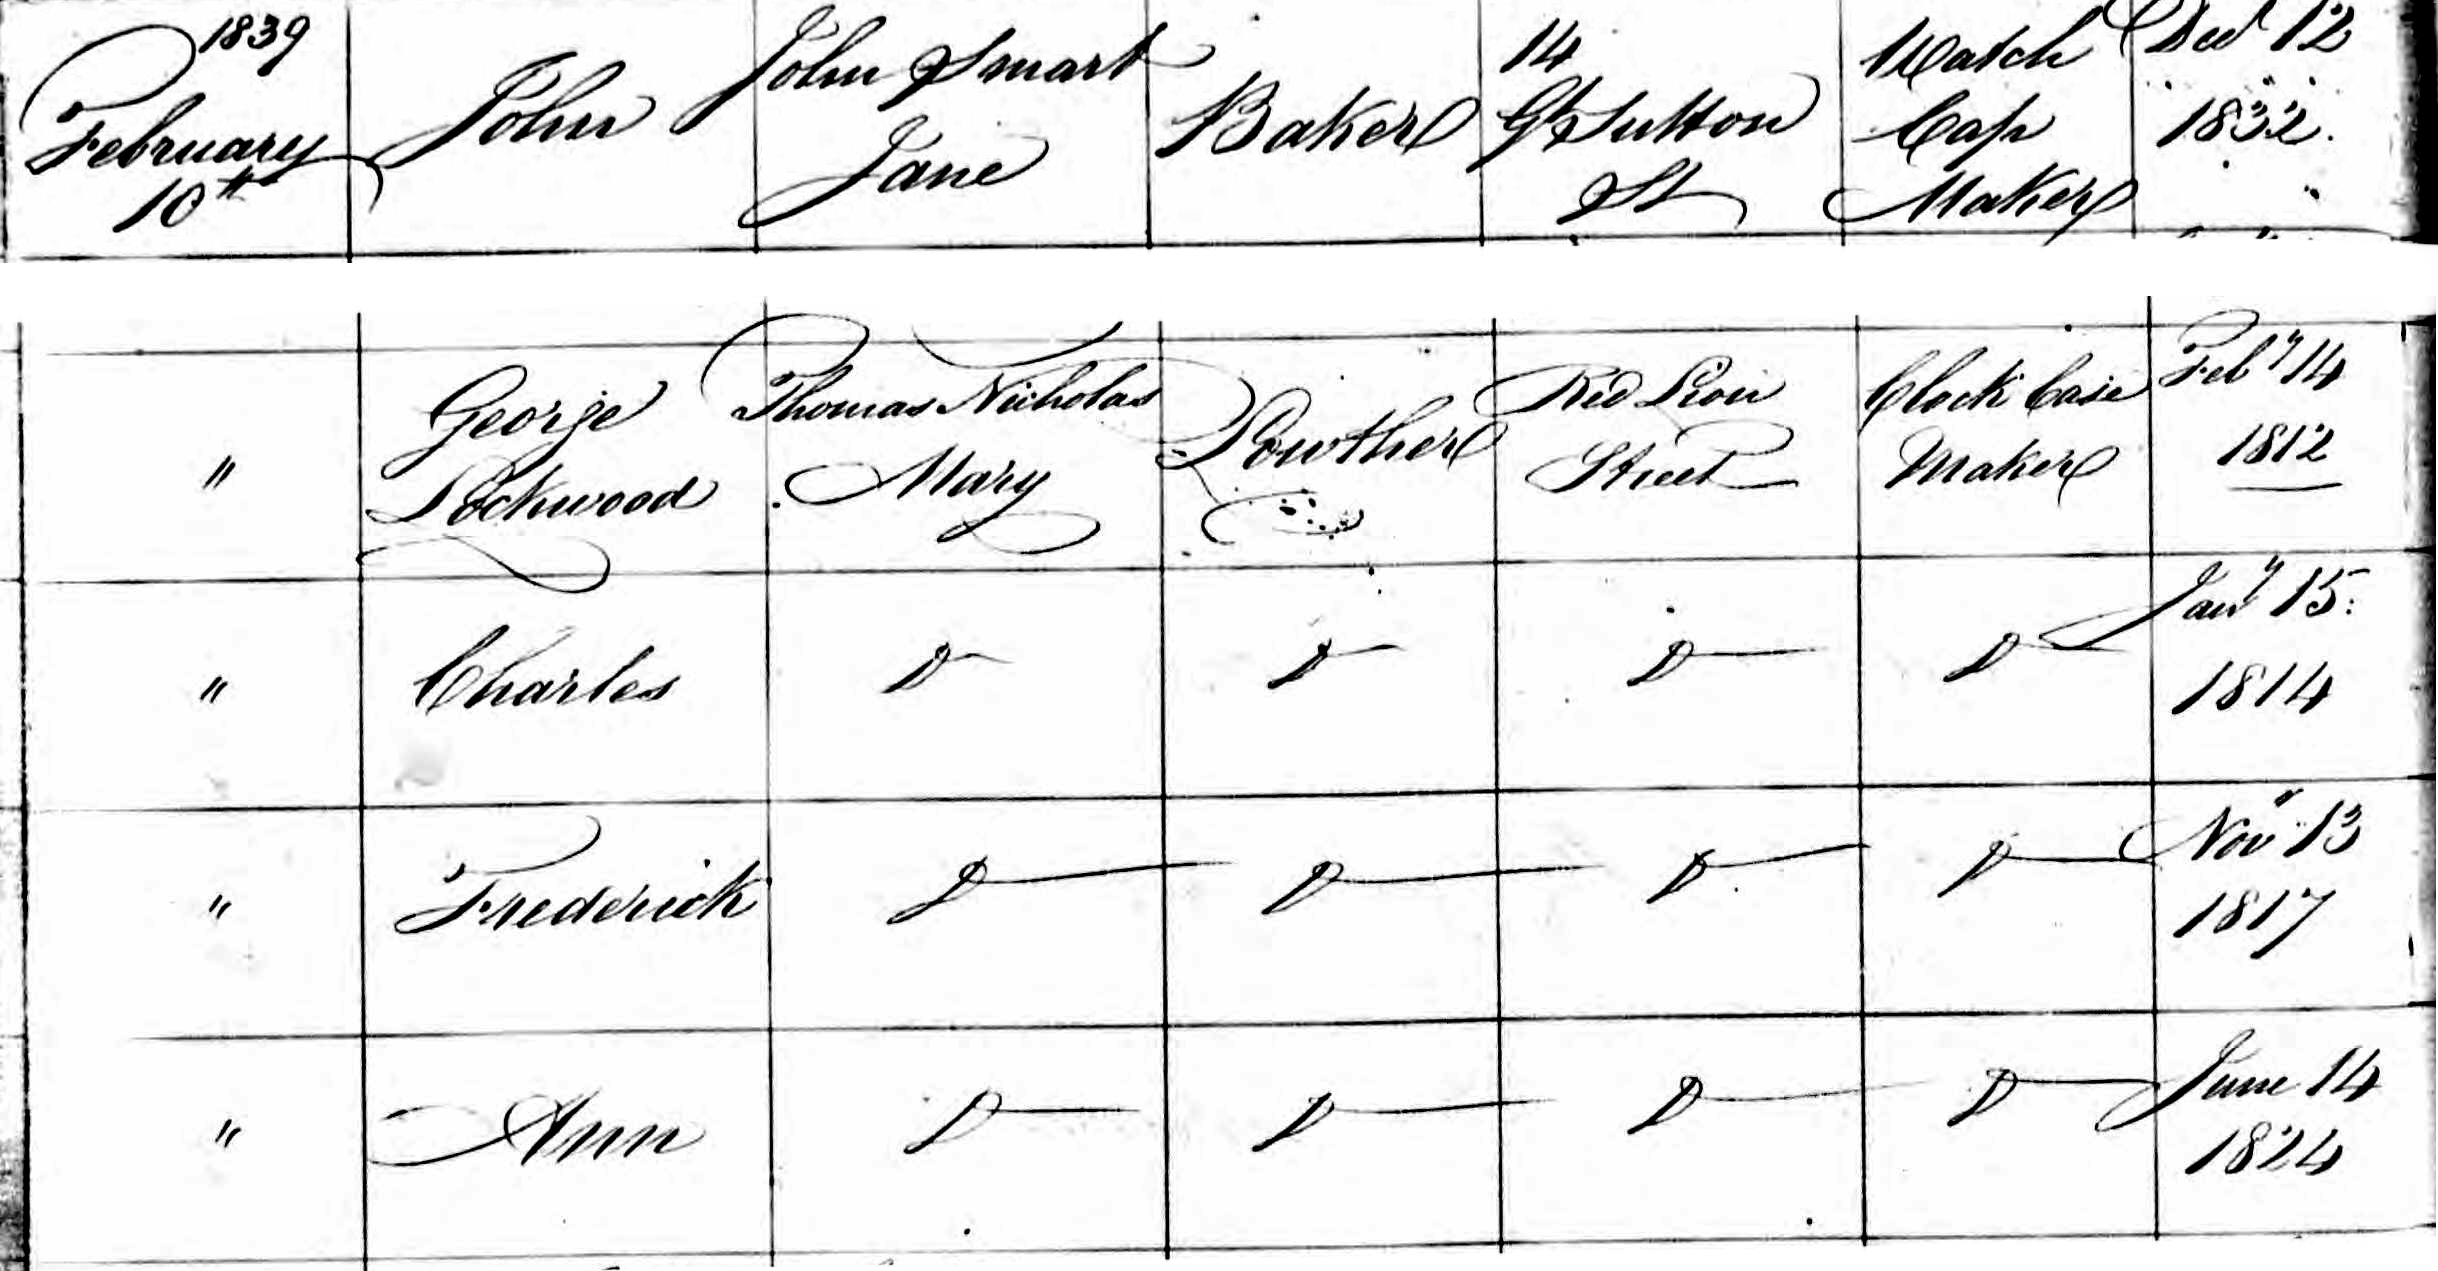 1839
February
10th
John
John Smart
Jane
Baker
14
Gt Sutton
St
Watch
Cap
Maker
Decr 12
1832.
"
George
Lockwood
Thomas Nicholas
Mary
Lowther
Red Lion
Street
Clock Case
Maker
Feby 14
1812
"
Charles
D
D
D
D
Jany 15
1814
"
Frederick
D
D
D
D
Novr 13
1817
"
Ann
D
D
D
D
June 14
1824